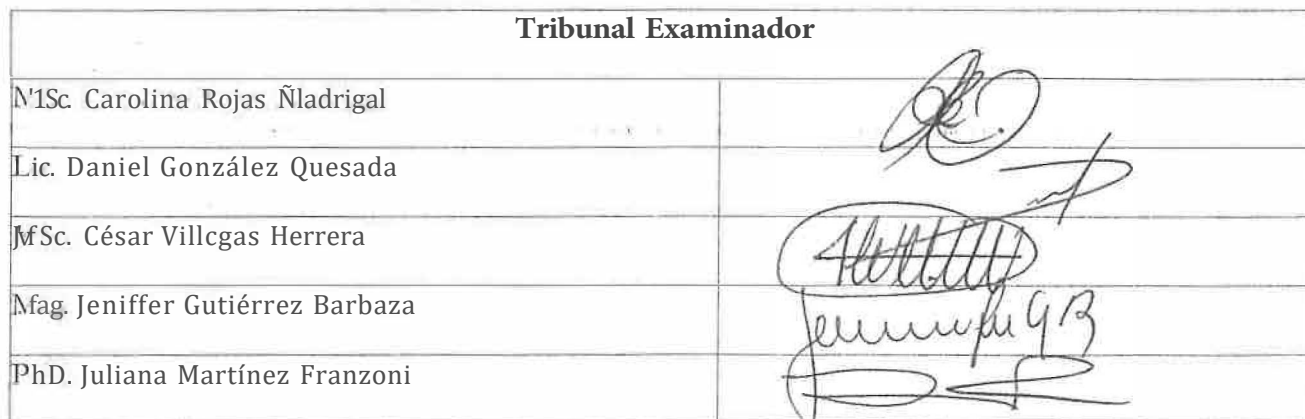 Tribunal Examinador
M1Sc. Carolina Rojas Ñladrigal
Lic. Daniel González Quesada
MSc. César Villcgas Herrera
Mag. Jeniffer Gutiérrez Barbaza
jennifer G B
PhD. Juliana Martínez Franzoni